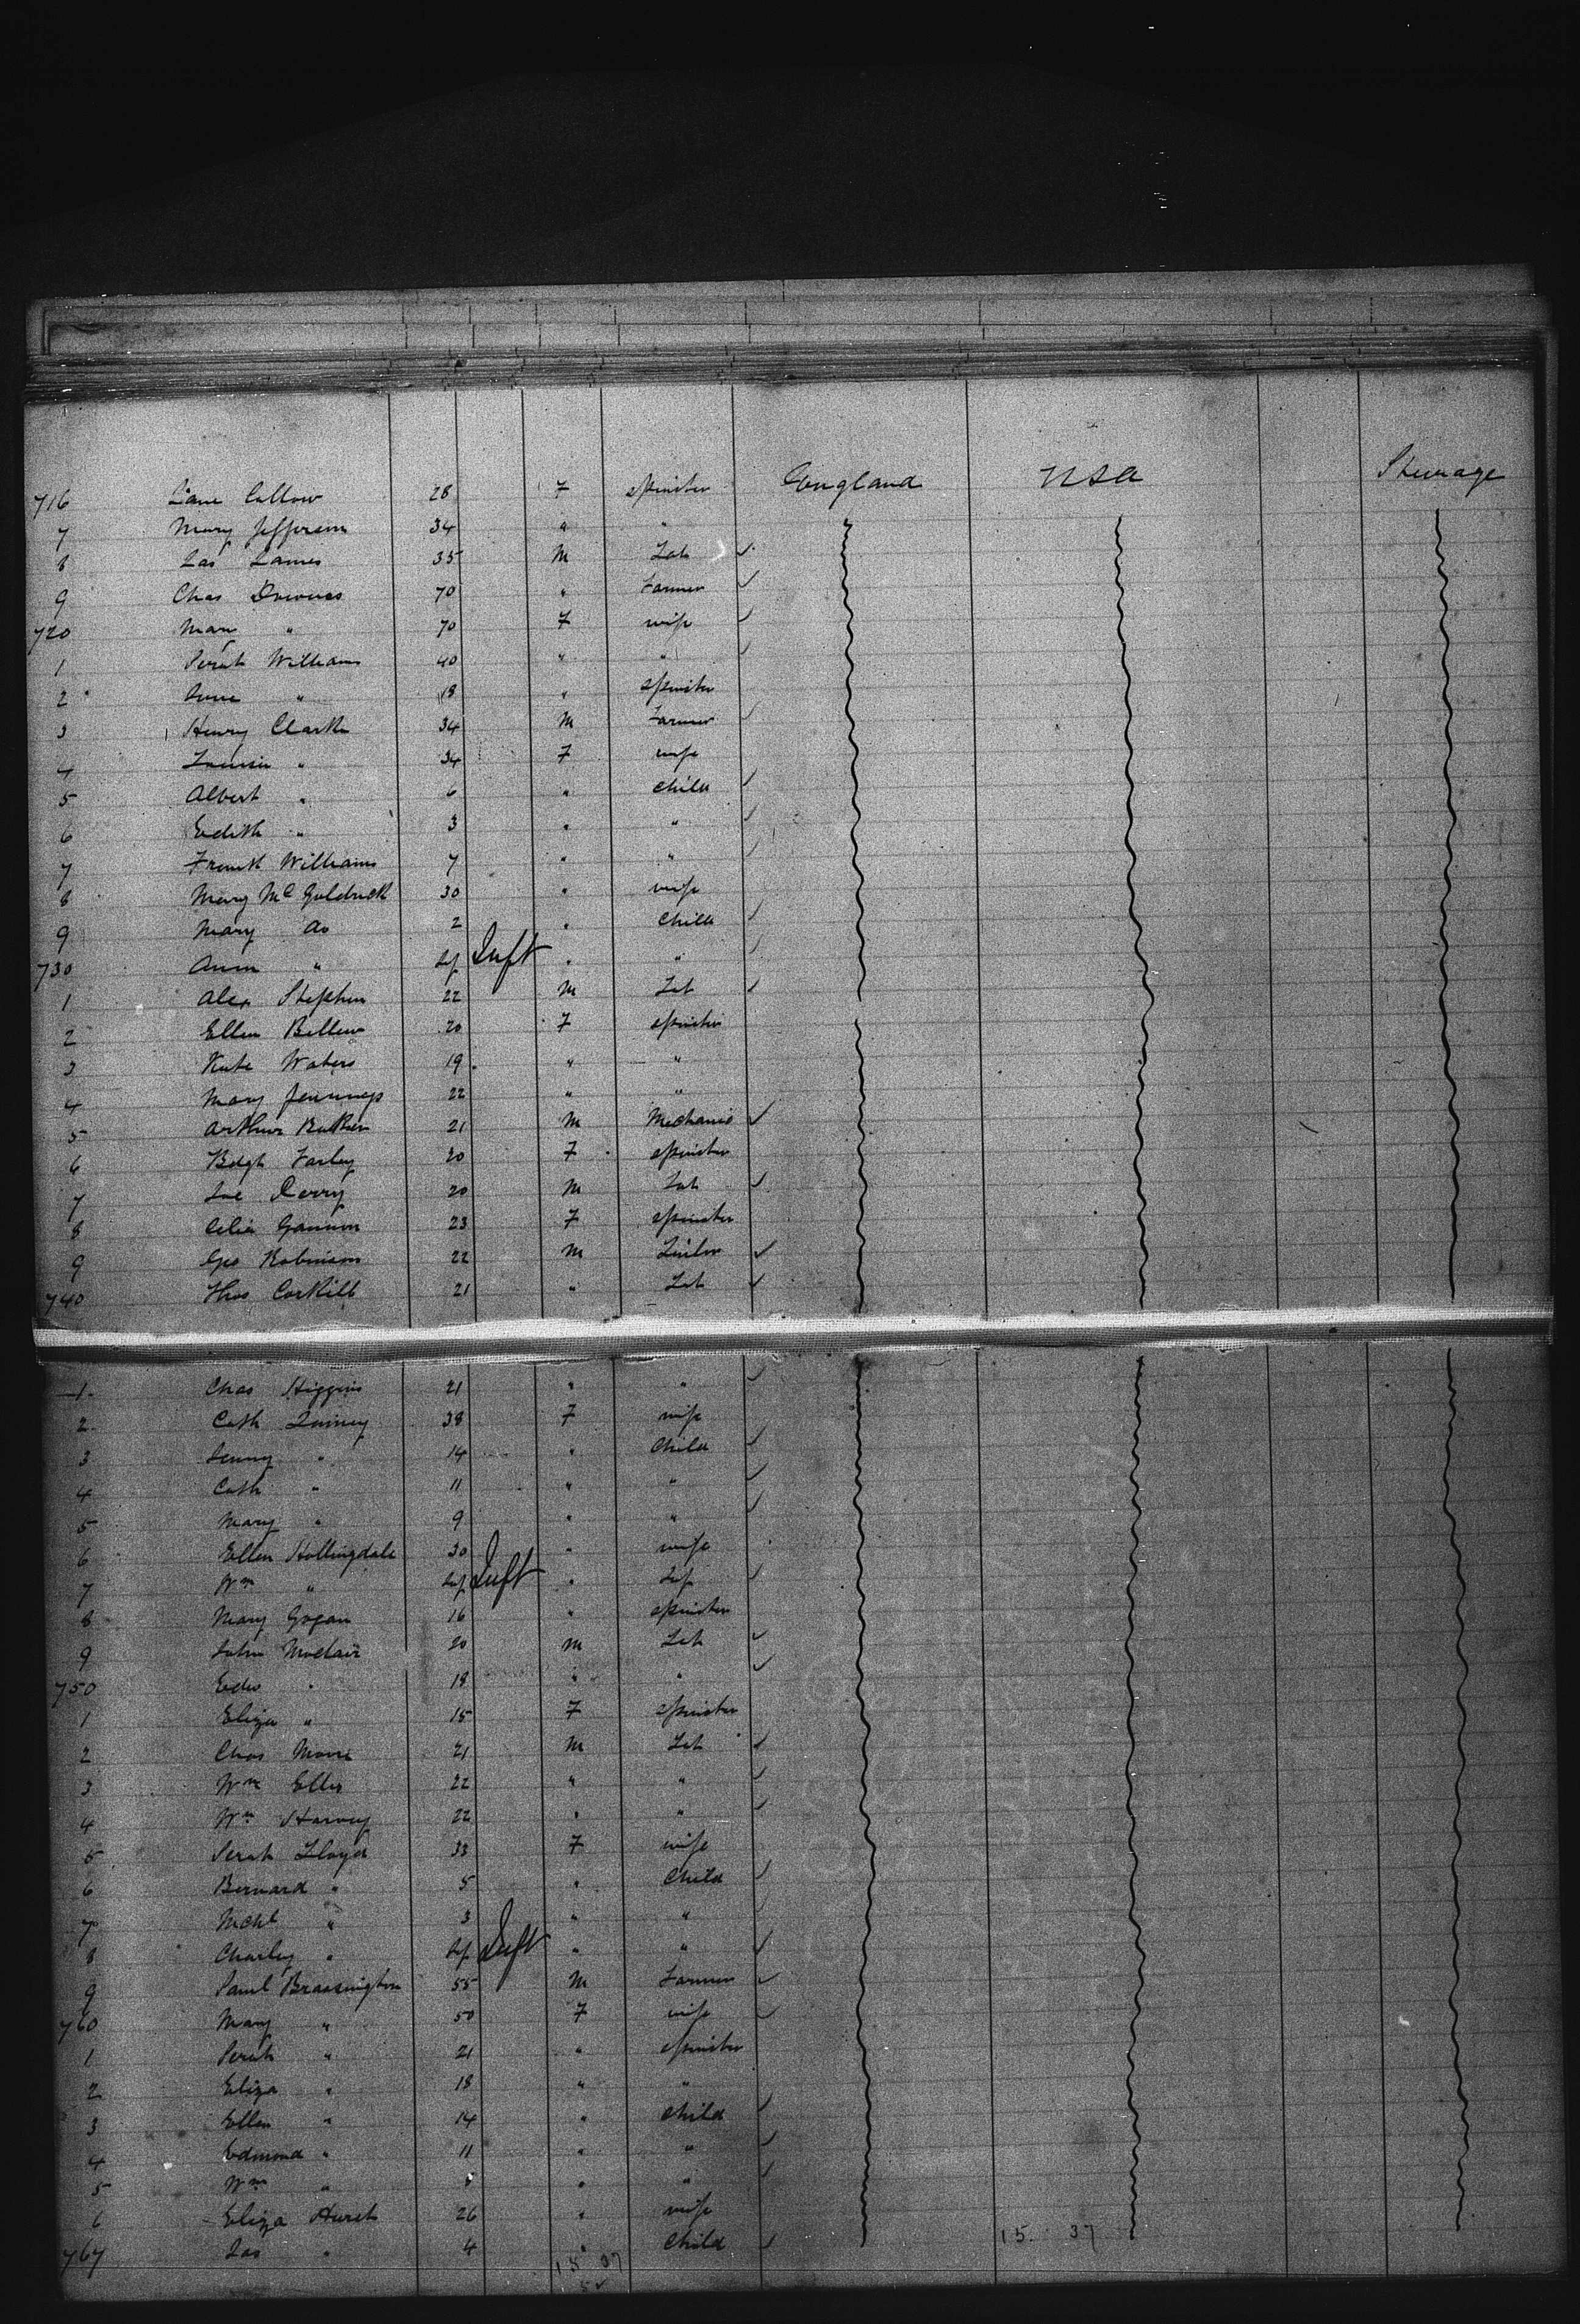 716 Jane Callow 28 F spinster England USA Steerage
7 Mary Jefferson 34 " "
8 Jas James 35 M Lab
9 Chas Downes 70 " Farmer
720 Mary " 70 F wife
1 Serah Williams 40 " "
2 " 18 " spinster
3 Henry Clark 34 M Farmer
4 Louisa " 34 F wife
5 Albert " 6 " Child
6 Edith " 3 " "
7 Frank Williams 7 " "
8 Mary McGoldrick 30 " wife
9 Mary Do 2 " Child
730 Ann " Inf Inft " "
1 Alex Stephen 22 M Lab
2 Ellen Bellew 20 F spinster
3 Kate Waters 19 " "
4 Mary Jennings 22 " "
5 Arthur 21 M Mechanic
6 Bdgt Farley 20 F spinster
7 Derry 20 M Lab
8 Celia Gannon 23 F spinster
9 Geo Robinson 22 M
740 Thos Corkill 21 " Lab
1 Chas Higgins 21 " "
2 Cath 38 F wife
3 Jenny " 14 " Child
4 Cath " 11 " "
5 Mary " 9 " "
6 Ellen Hollingdale 30 " wife
7 Wm " Inf Inft " Inf
8 Mary Gogan 16 " spinster
9 John 20 M Lab
750 Edw " 18 " "
1 Eliza " 15 F spinster
2 Chas 21 M Lab
3 Wm Ellis 22 " "
4 Wm Harvey 22 " "
5 Serah Lloyd 33 F wife
6 Bernard " 5 " Child
7 Mchl " 3 " "
8 Charley " Inf Inft " "
9 Saml Brassington 55 M Farmer
760 Mary " 50 F wife
1 Serah " 21 " spinster
2 Eliza " 18 " "
3 Ellen " 14 " Child
4 Edmond " 11 " "
5 Wm " 8 " "
6 Eliza Hurst 26 " wife
767 Jas " 4 " Child
15 37 15 37